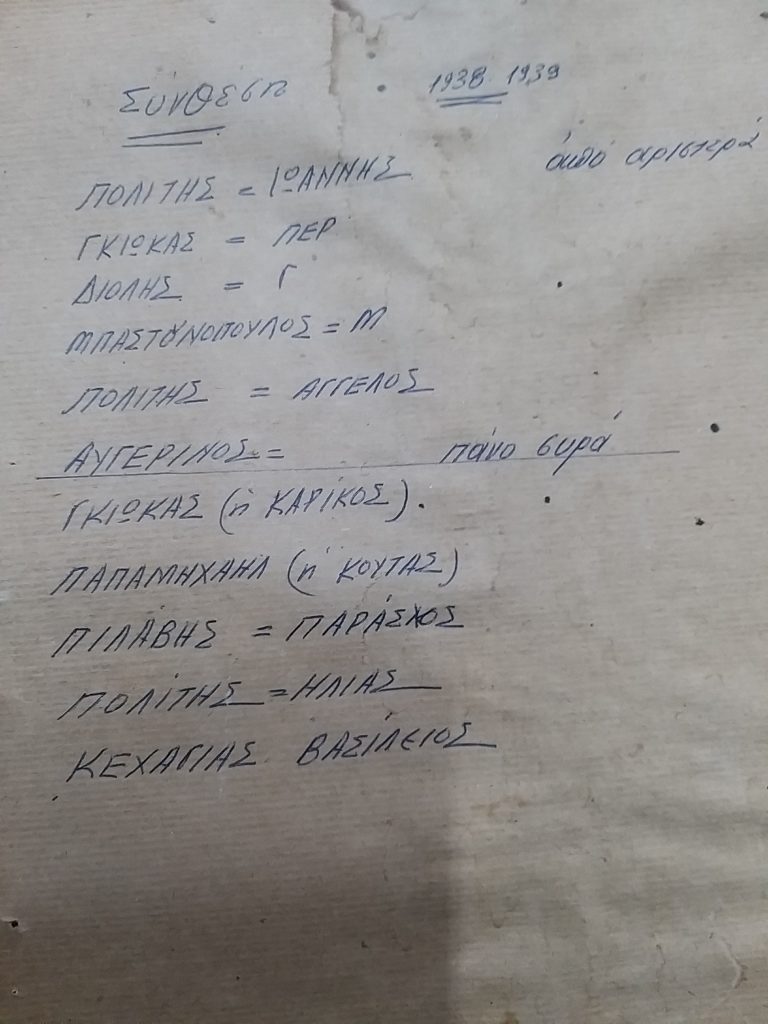 Σύνθεση 1938 1939
ΠΟΛΙΤΗΣ = ΙΩΑΝΝΗΣ από αριστερά
ΓΚΙΩΚΑΣ = ΠΕΡ
ΔΙΟΛΗΣ = Γ
ΜΠΑΣΤΟΥΝΟΠΟΥΛΟΣ = Μ
ΠΟΛΙΤΗΣ = ΑΓΓΕΛΟΣ
ΑΥΓΕΡΙΝΟΣ = πάνο συρά
ΓΚΙΩΚΑΣ (ή ΚΑΡΙΚΟΣ).
ΠΑΠΑΜΗΧΑΗΛ (ή ΚΟΥΤΑΣ)
ΠΙΛΑΒΗΣ = ΠΑΡΆΣΧΟΣ
ΠΟΛΙΤΗΣ = ΗΛΙΑΣ
ΚΕΧΑΓΙΑΣ ΒΑΣΙΛΕΙΟΣ